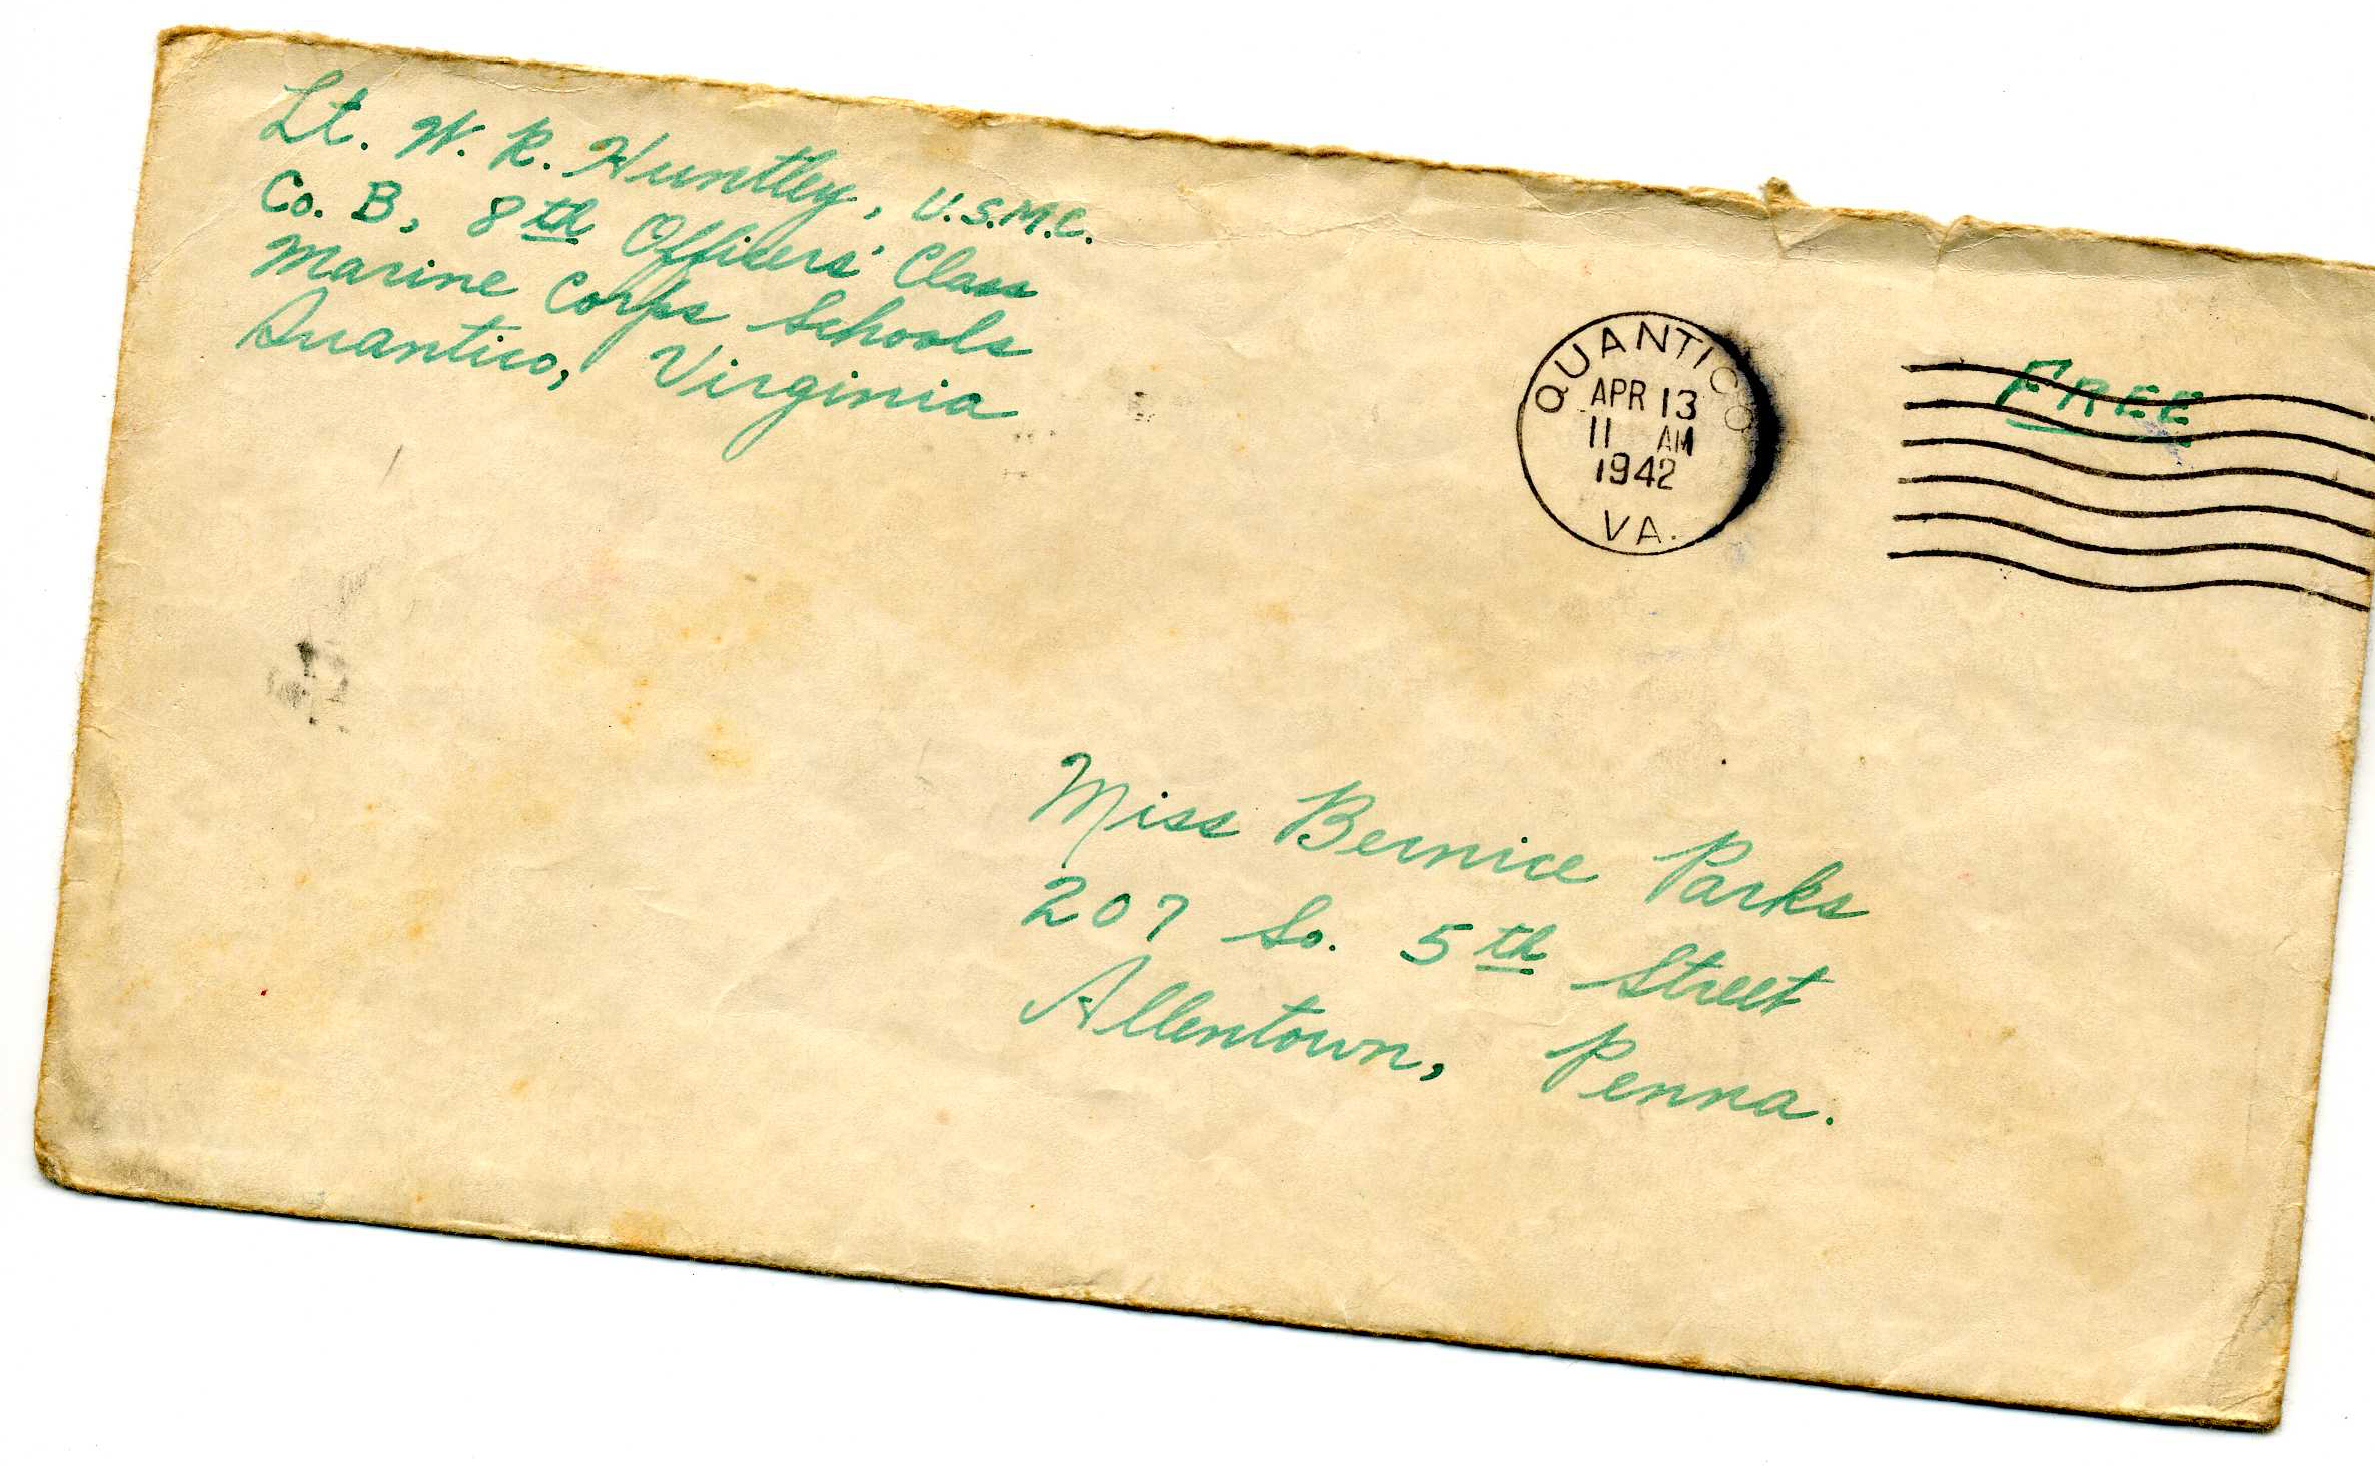 Lt. W. R. Huntley, U.S.M.C.
Co. B, 8th Officers' Class
Marine Corps Schools
Quantico, Virginia
QUANTICO
APR 13
11 AM
1942
VA.
FREE
Miss Bernice Parks
207 So. 5th Street
Allentown, Penna.